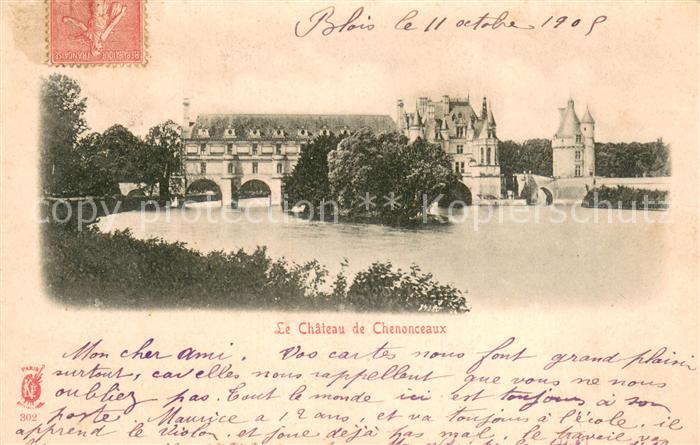 Blois le 11 octobre 1905
REPUBLIQUE FRANÇAISE
copy protect *** copy protect *** Kopierschutz
Le Château de Chenonceaux
Mon cher ami. Vos cartes nous font grand plaisir
surtout, car elles nous rappellent que vous ne nous
oubliez pas. Tout le monde ici est toujours à son
poste. Maurice a 12 ans, et va toujours à l'école, il
apprend le violon, et joue déjà pas mal, le travail
PARIS
302